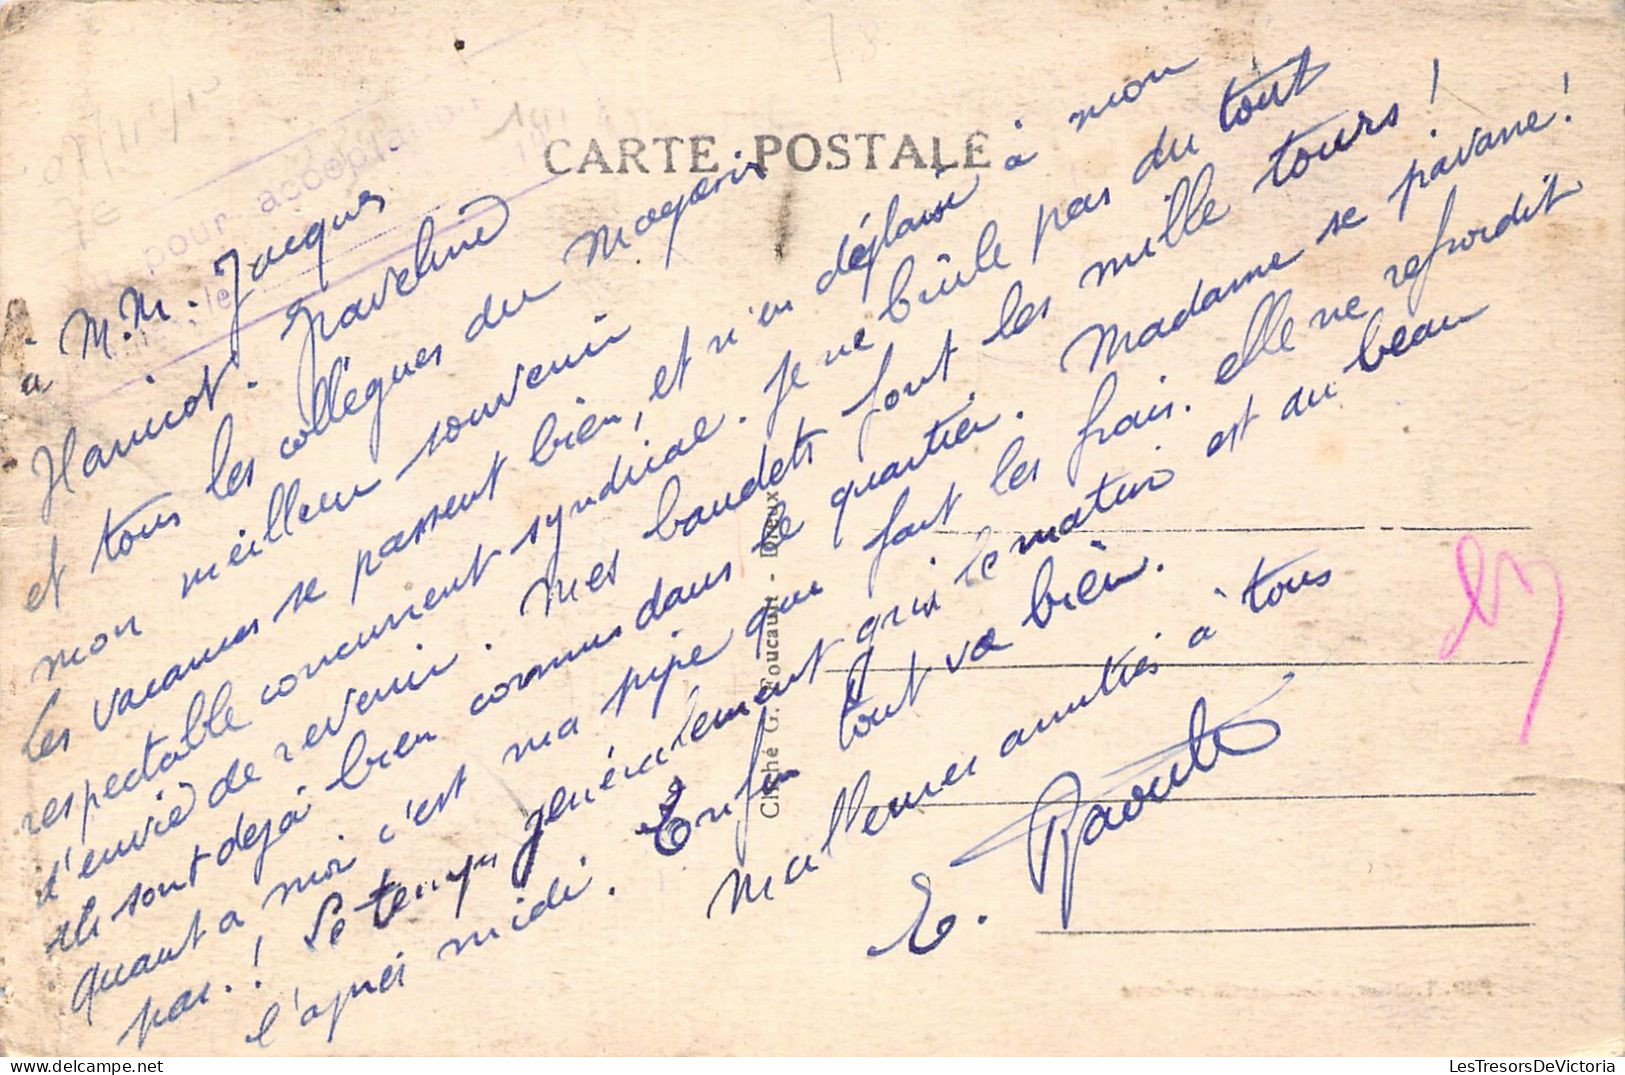 CARTE POSTALE
à M.M. Jacques
Hanicot. Javelaud
et tous les collègues du Magasin
mon meilleur souvenir
Les vacances se passent bien, et n'en déplaise à mon
respectable concurrent syndical. Je ne brûle pas du tout
d'envie de revenir. Mes baudets font les mille tours!
ils sont déjà bien connus dans le quartier. Madame se pavane!
quant à moi c'est ma pipe qui fait les frais. elle ne refroidit
pas.! Le temps généralement gris le matin est au beau
l'après midi. Enfin tout va bien.
Meilleures amitiés à tous
E. Raoult
Cliché G. Foucault - Dreux
pour
le
LesTresorsDeVictoria